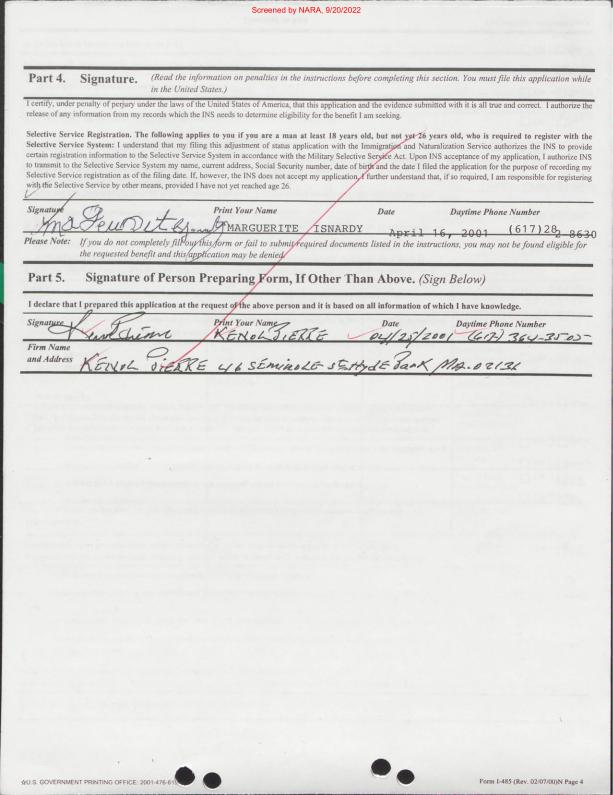 Screened by NARA, 9/20/2022
Part 4. Signature. (Read the information on penalties in the instructions before completing this section. You must file this application while
in the United States.)
I certify, under penalty of perjury under the laws of the United States of America, that this application and the evidence submitted with it is all true and correct. I authorize the
release of any information from my records which the INS needs to determine eligibility for the benefit I am seeking.
Selective Service Registration. The following applies to you if you are a man at least 18 years old, but not yet 26 years old, who is required to register with the
Selective Service System: I understand that my filing this adjustment of status application with the Immigration and Naturalization Service authorizes the INS to provide
certain registration information to the Selective Service System in accordance with the Military Selective Service Act. Upon INS acceptance of my application, I authorize INS
to transmit to the Selective Service System my name, current address, Social Security number, date of birth and the date I filed the application for the purpose of recording my
Selective Service registration as of the filing date. If, however, the INS does not accept my application, I further understand that, if so required, I am responsible for registering
with the Selective Service by other means, provided I have not yet reached age 26.
Signature Print Your Name Date Daytime Phone Number
MARGUERITE ISNARDY April 16, 2001 (617)282-8630
Please Note: If you do not completely fill out this form or fail to submit required documents listed in the instructions, you may not be found eligible for
the requested benefit and this application may be denied.
Part 5. Signature of Person Preparing Form, If Other Than Above. (Sign Below)
I declare that I prepared this application at the request of the above person and it is based on all information of which I have knowledge.
Signature Print Your Name Date Daytime Phone Number
KENOL PIERRE 04/25/2001 (617) 364-3505
Firm Name
and Address KENOL PIERRE 46 SEMINOLE ST Hyde Park MA. 02136
☆U.S. GOVERNMENT PRINTING OFFICE: 2001-476-61
Form I-485 (Rev. 02/07/00)N Page 4